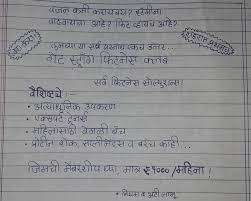 वजन कमी करायचंय? स्टॅमिना
वाढवायचा आहे? फिट व्हायचं आहे?
तुमच्या या सर्व प्रश्नांचं एकच उत्तर...
गेट स्ट्राँग फिटनेस क्लब
सर्व फिटनेस सोल्युशन्स
वैशिष्ट्ये:-
• अत्याधुनिक उपकरणं
• एक्सपर्ट ट्रेनर्स
• महिलांसाठी वेगळी बॅच
• प्रोटीन शेक, सप्लीमेंट्स व बरंच काही...
जिमची मेंबरशीप घ्या, मात्र ₹ १००० /महिना!
• नियम व अटी लागू